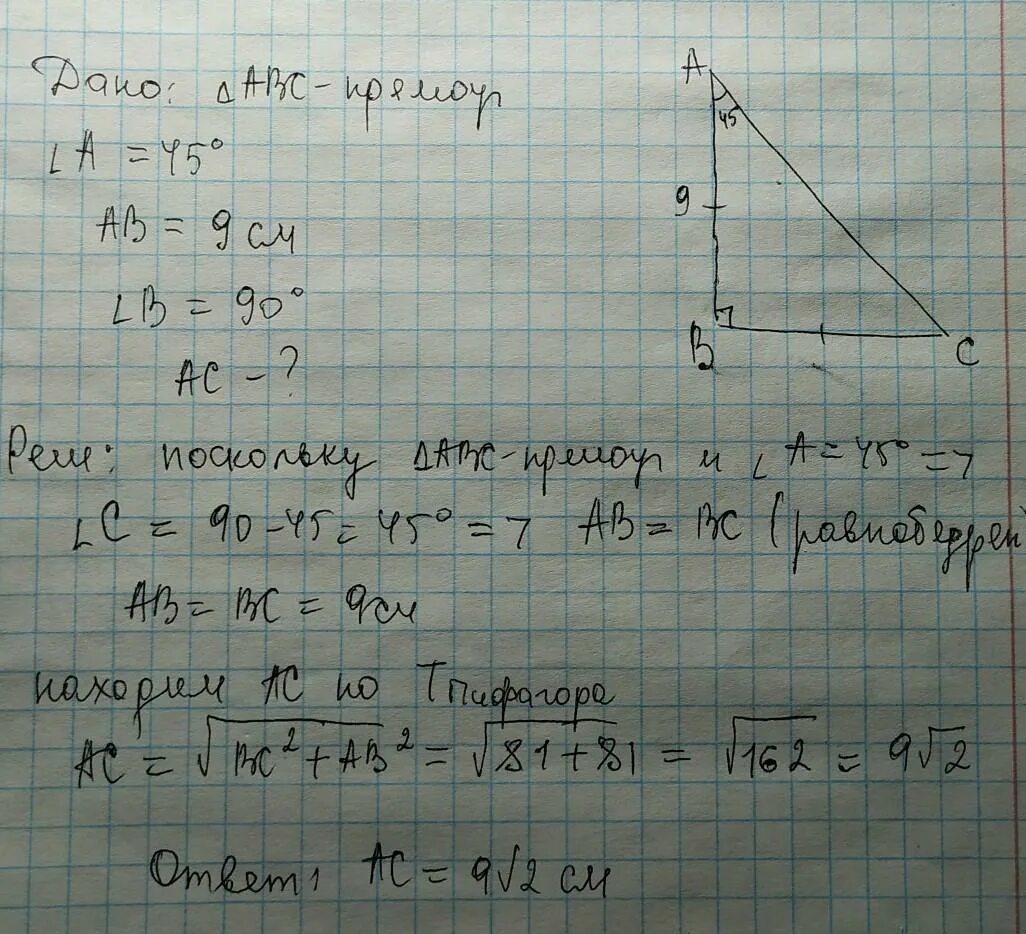 Дано: △ABC-прямоуг
∠A = 45°
AB = 9 см
∠B = 90°
AC - ?
A
45
9
B
C
Реш: поскольку △ABC-прямоуг и ∠A = 45° =>
∠C = 90-45 = 45° => AB = BC (равнобедрен)
AB = BC = 9 см
находим AC по Т Пифагора
AC = √BC² + AB² = √81 + 81 = √162 = 9√2
Ответ: AC = 9√2 см